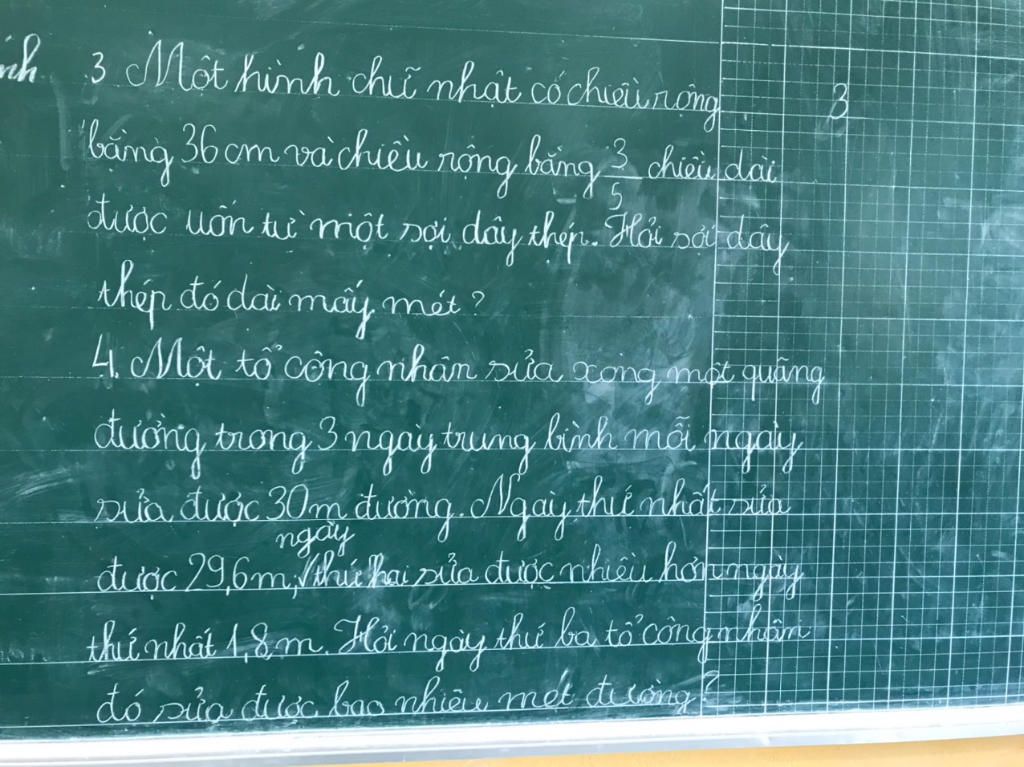 3 Một hình chữ nhật có chiều rộng
3
bằng 36cm và chiều rộng bằng 3/5 chiều dài
được uốn từ một sợi dây thép. Hỏi sợi dây
thép đó dài mấy mét?
4. Một tổ công nhân sửa xong một quãng
đường trong 3 ngày trung bình mỗi ngày
sửa được 30m đường. Ngày thứ nhất sửa
ngày
được 29,6m, thứ hai sửa được nhiều hơn ngày
thứ nhất 1,8m. Hỏi ngày thứ ba tổ công nhân
đó sửa được bao nhiêu mét đường?